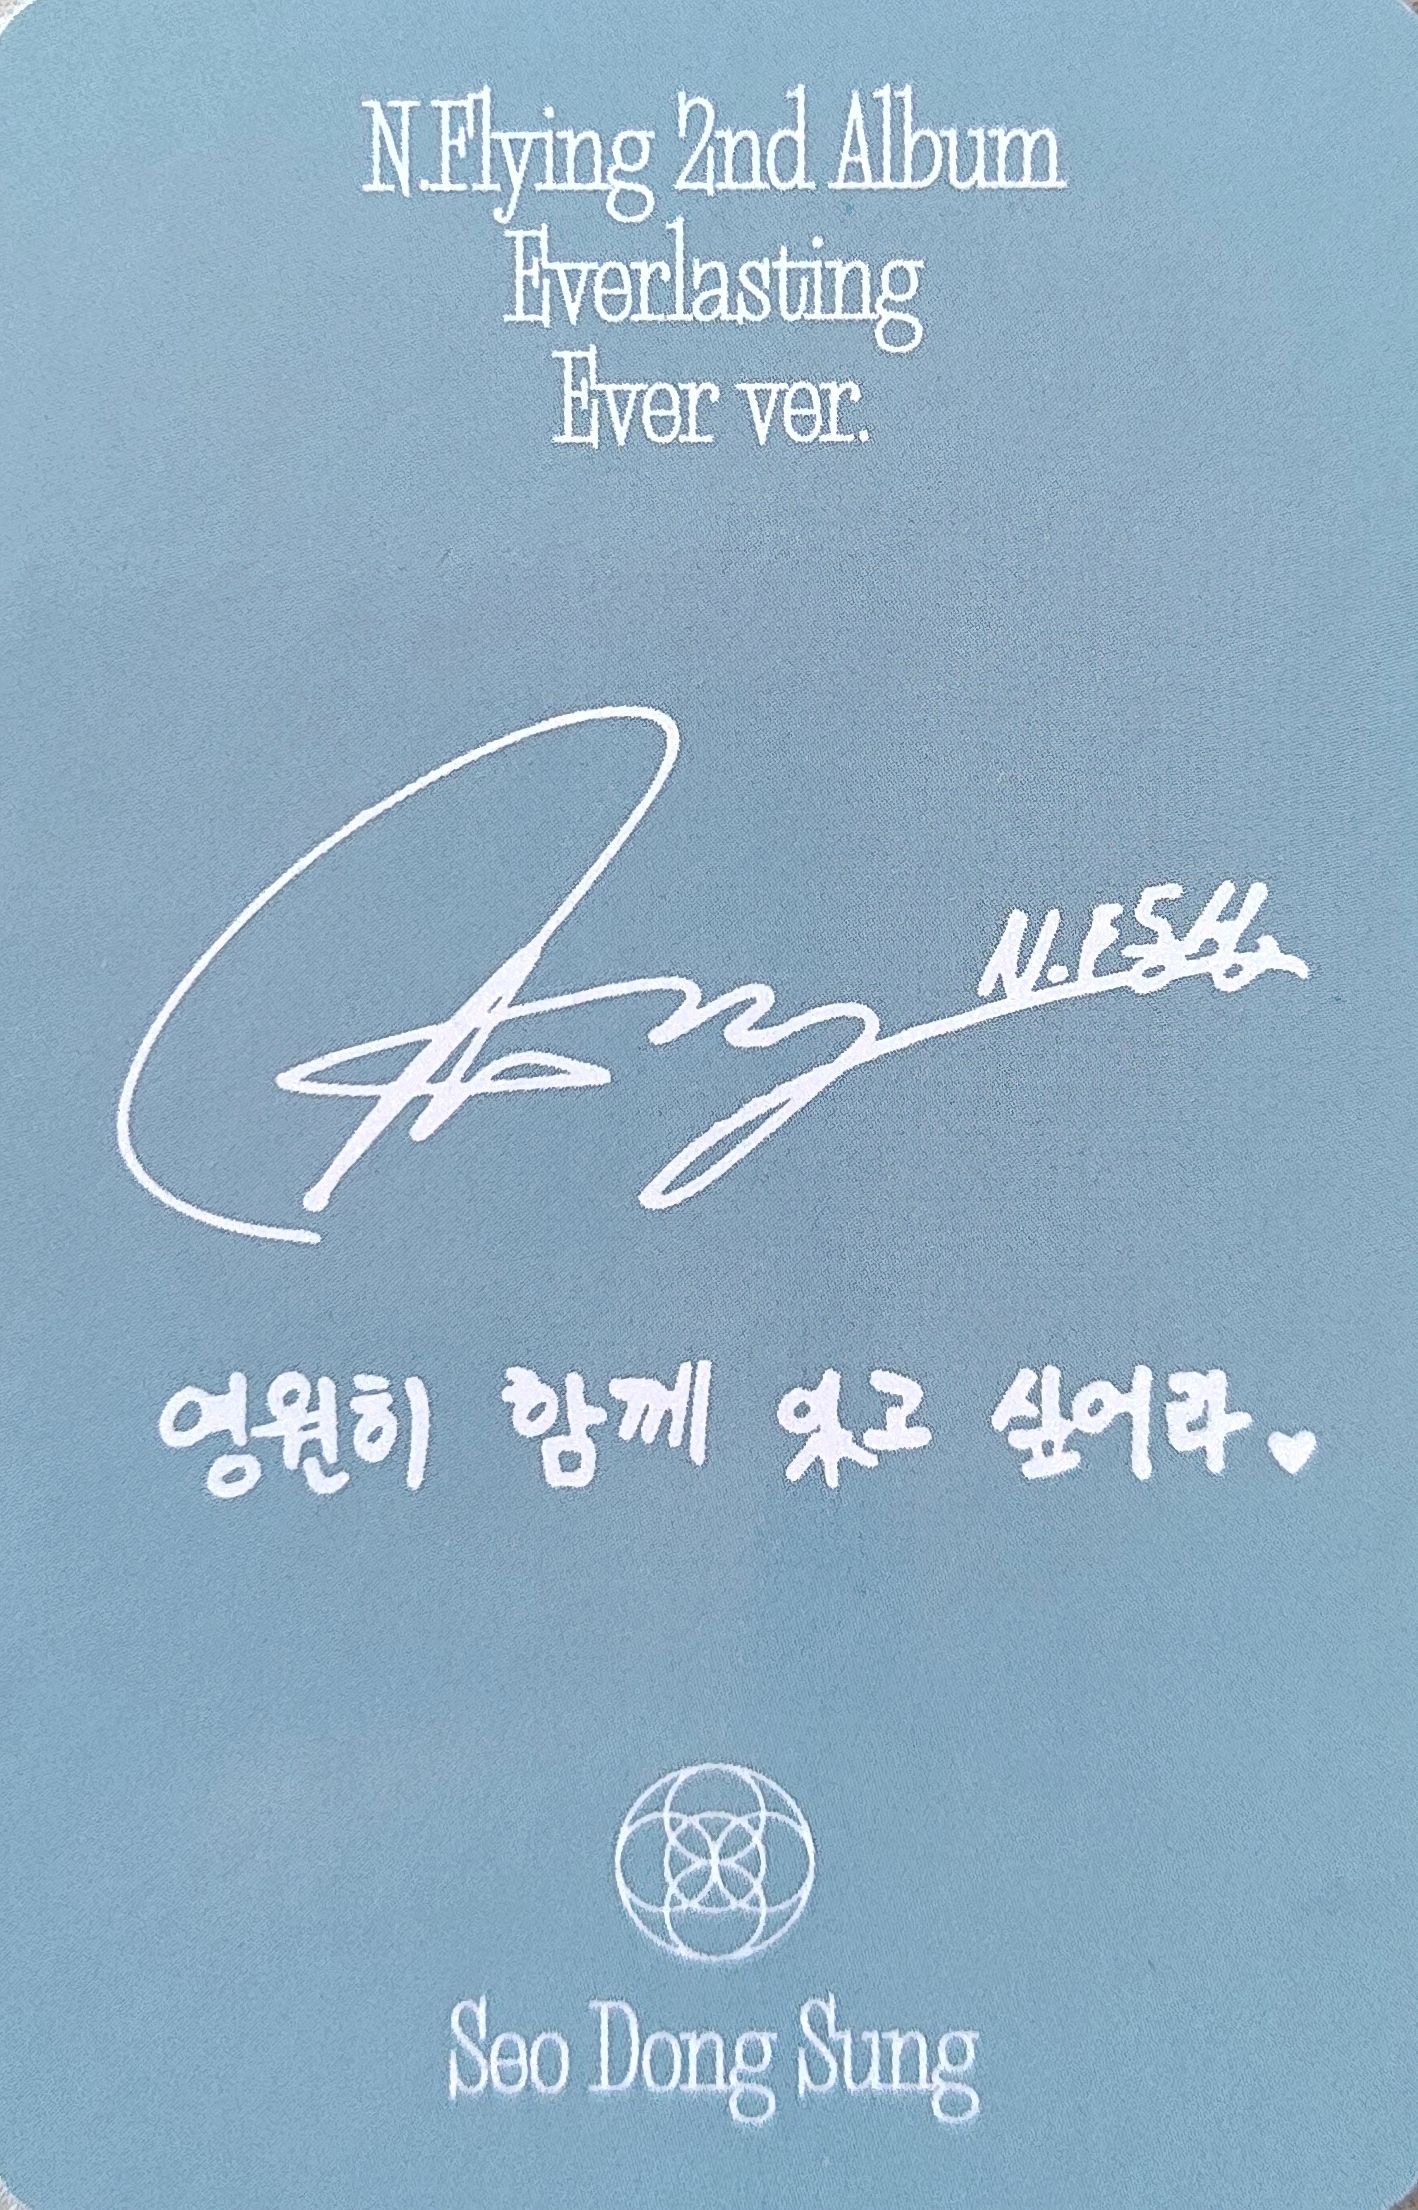 N.Flying 2nd Album
Everlasting
Ever ver.
N.F동성
영원히 함께 있고 싶어라♥
Seo Dong Sung